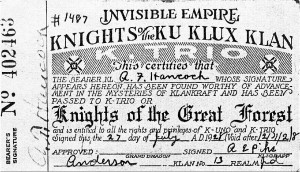 #1487
INVISIBLE EMPIRE,
KNIGHTS of the KU KLUX KLAN
K-TRIO
This certifies that
THE BEARER, KL A. F. Hancock WHOSE SIGNATURE
APPEARS HEREON, HAS BEEN FOUND WORTHY OF ADVANCE-
MENT IN THE MYSTERIES OF KLANKRAFT AND HAS BEEN
PASSED TO K-TRIO OR
Knights of the Great Forest
and is entitled to all the rights and privileges of K-UNO and K-TRIO
Signed this the 27 day of July 1928 Void after 12/31/28
APPROVED: SIGNED
GRAND DRAGON
Anderson KLAN NO. 13 REALM
No 402463
BEARER'S
SIGNATURE